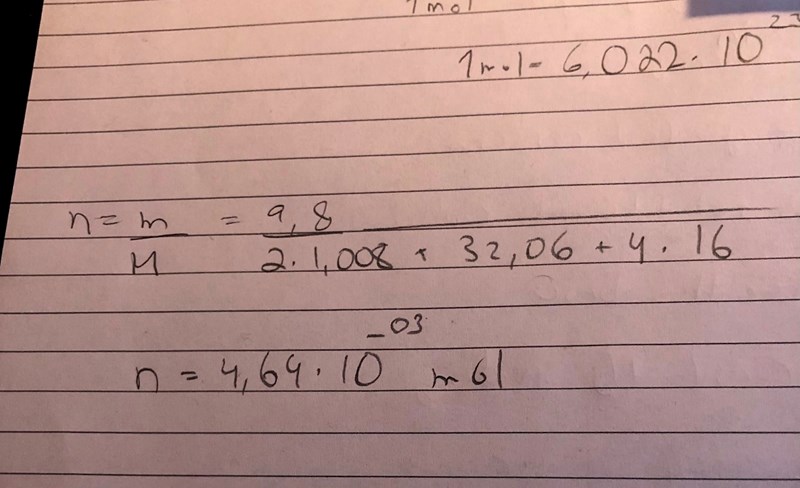 1mol
1mol = 6,022 · 10²³
n = m = 9,8
M 2·1,008 + 32,06 + 4 · 16
n = 4,64 · 10⁻⁰³ mol